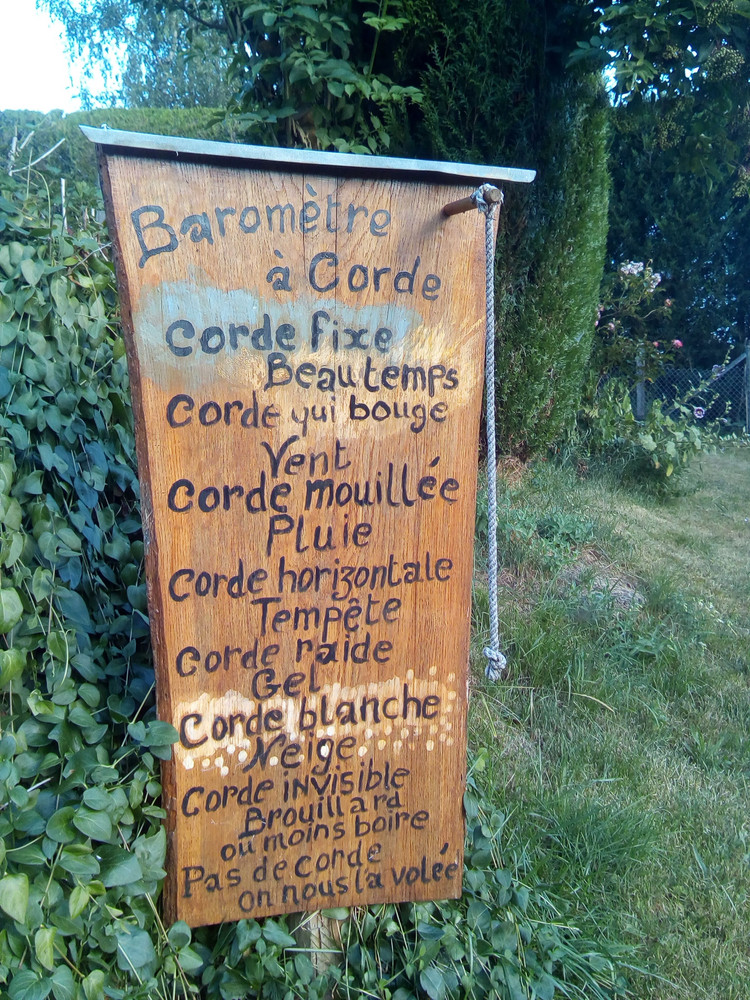 Baromètre
à Corde
Corde fixe
Beau temps
Corde qui bouge
Vent
Corde mouillée
Pluie
Corde horizontale
Tempête
Corde raide
Gel
Corde blanche
Neige
Corde invisible
Brouillard
ou moins boire
Pas de corde
on nous la volée